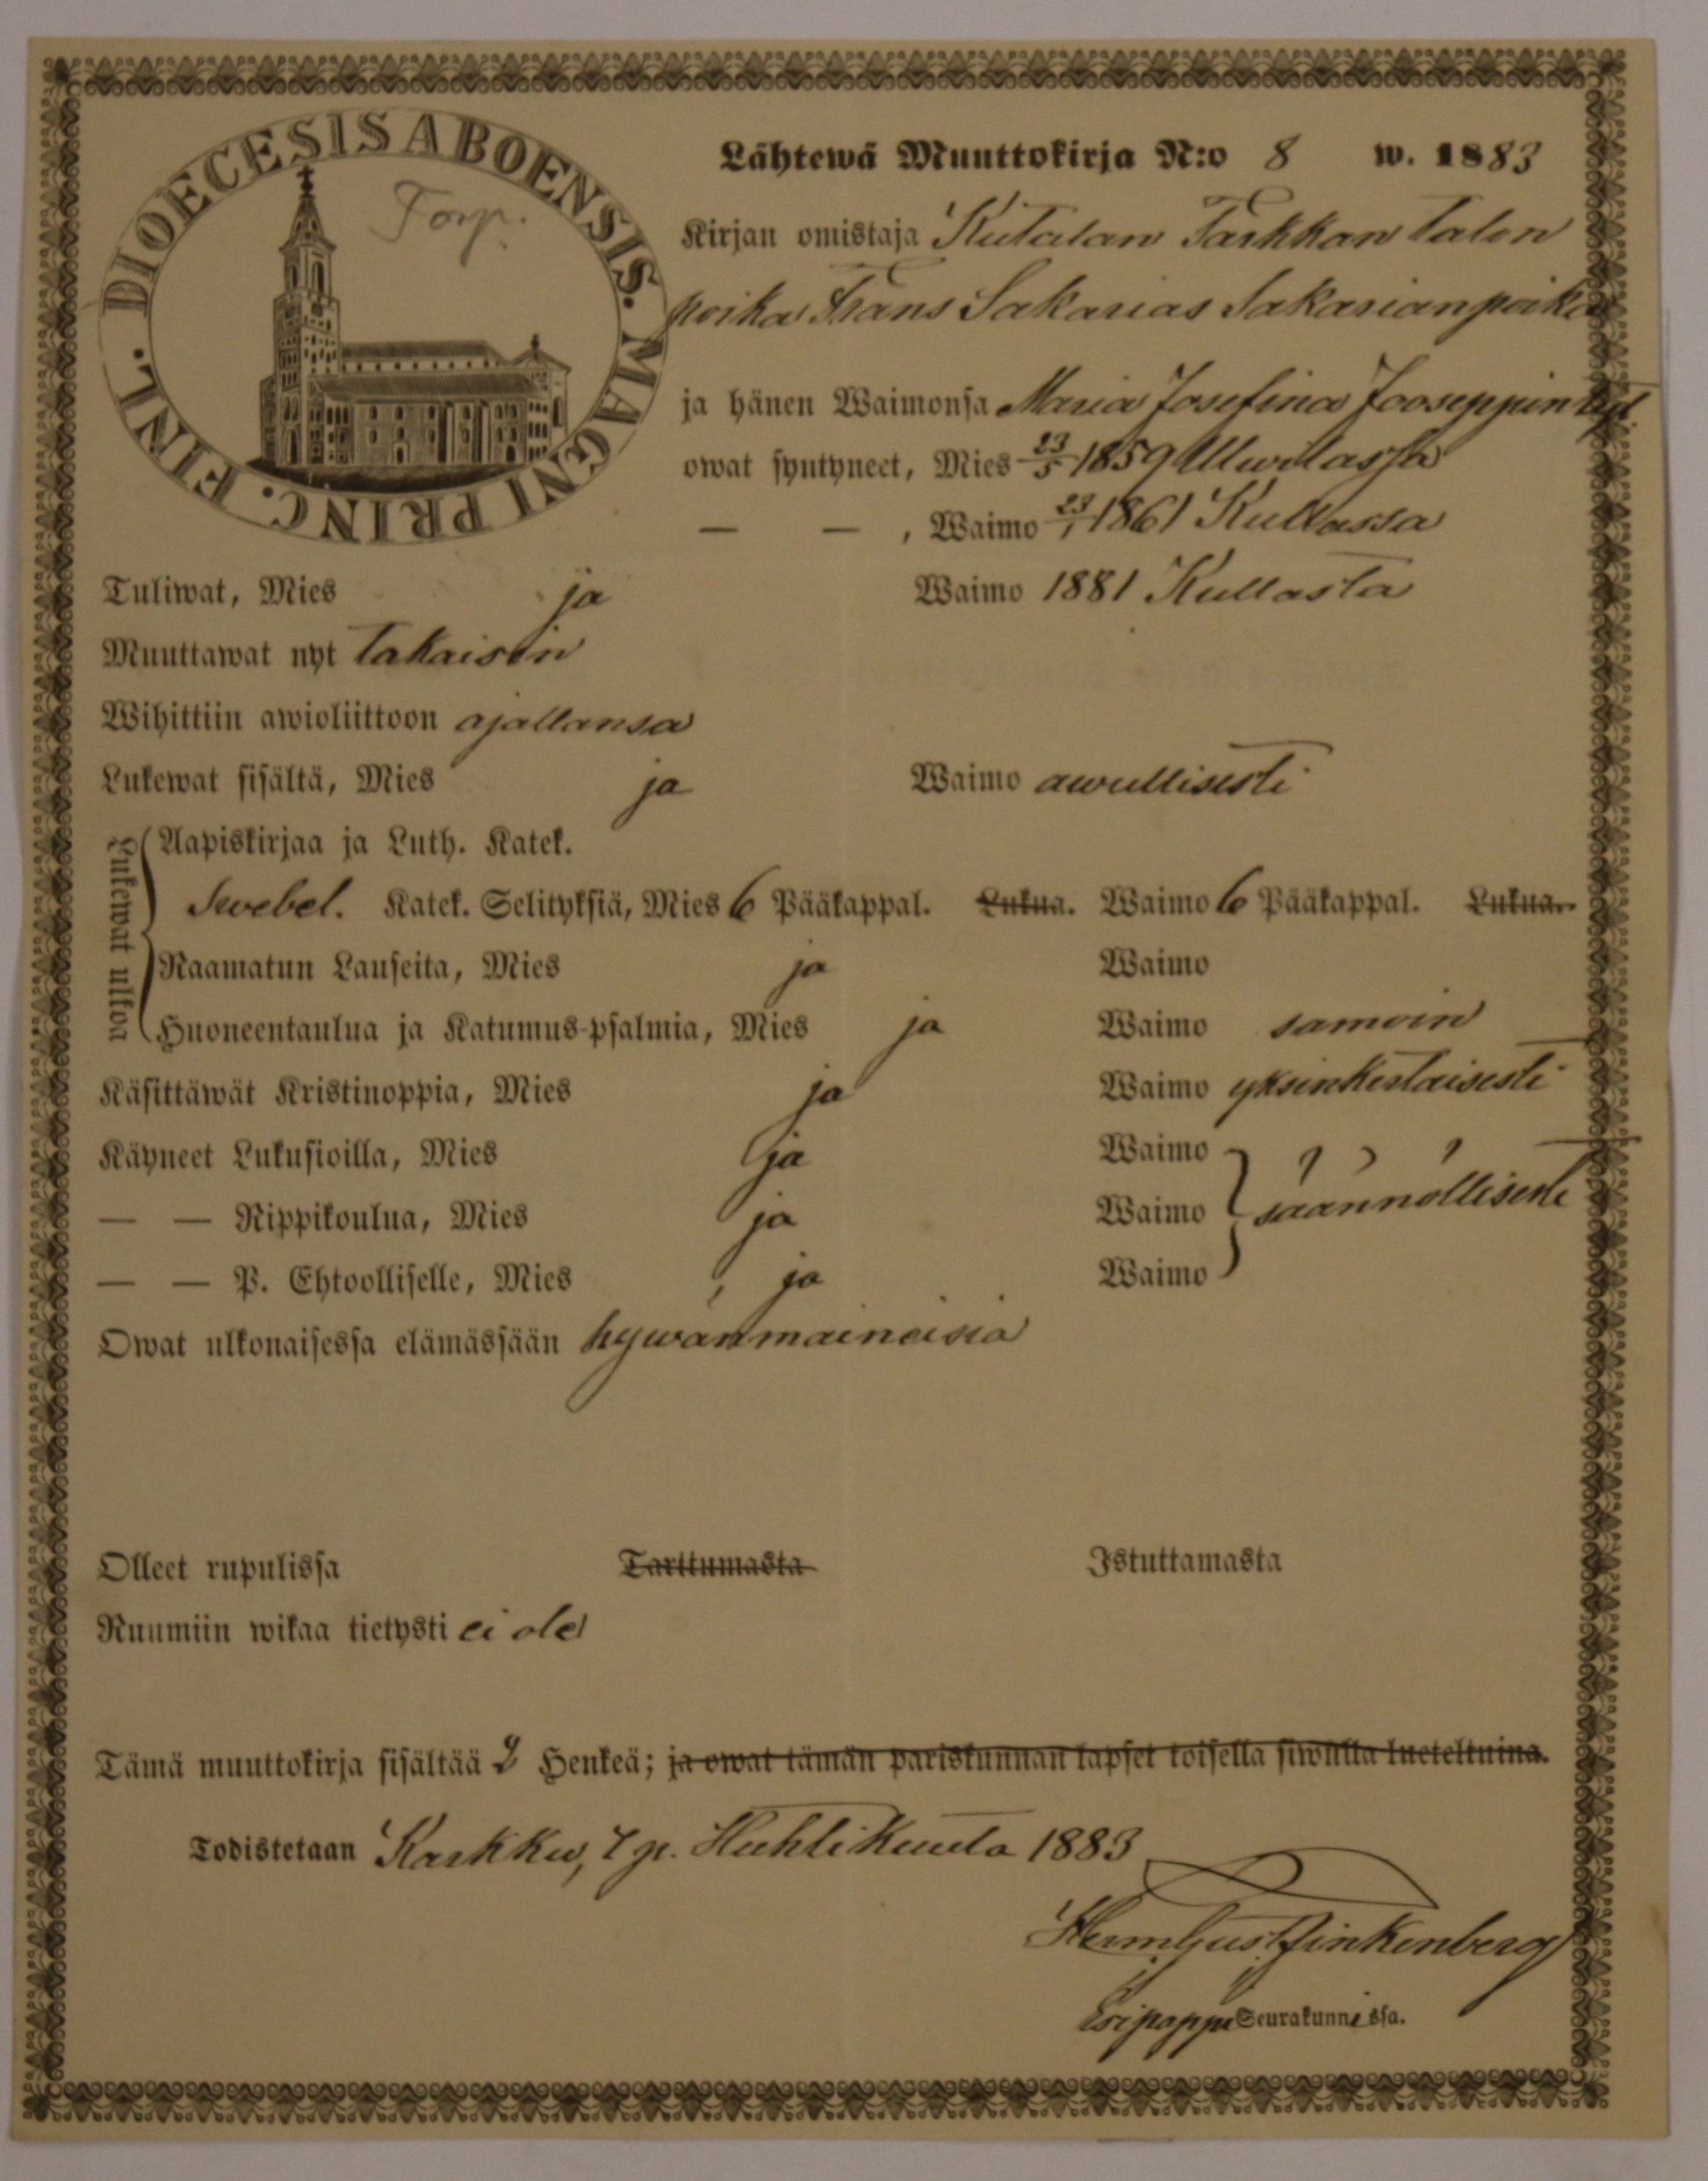 DIOECESIS ABOENSIS. MAGNI PRINC. FINL.
Torp.
Lähtewä Muuttokirja N:o 8 w. 1883
Kirjan omistaja Kutalan Tarkkan talon
poika Frans Sakarias Sakarianpoika
ja hänen Waimonsa Maria Josefina Jooseppin tyt.
owat syntyneet, Mies 23/5 1859 Ulwilassa
— — , Waimo 23/1 1861 Kullassa
Tuliwat, Mies ja Waimo 1881 Kullasta
Muuttawat nyt takaisin
Wihittiin awioliittoon ajallansa
Lukewat sisältä, Mies ja Waimo awullisesti
Lukewat ulkoa
Aapiskirjaa ja Luth. Katek.
Swebel. Katek. Selityksiä, Mies 6 Pääkappal. Lukua. Waimo 6 Pääkappal. Lukua.
Raamatun Lauseita, Mies ja Waimo
Huoneentaulua ja Katumus-psalmia, Mies ja Waimo samoin
Käsittäwät Kristinoppia, Mies ja Waimo yksinkertaisesti
Käyneet Lukusioilla, Mies ja Waimo
— — Rippikoulua, Mies ja Waimo säännöllisesti
— — P. Ehtoolliselle, Mies ja Waimo
Owat ulkonaisessa elämässään hywänmaineisia
Olleet rupulissa Tarttumasta Istuttamasta
Ruumiin wikaa tietysti ei ole
Tämä muuttokirja sisältää 2 Henkeä; ja owat tämän pariskunnan lapset toisella siwulla lueteltuina.
Todistetaan Karkku, 7 p. Huhtikuuta 1883
Herm Gust Finkenberg
Esipappi Seurakunnissa.